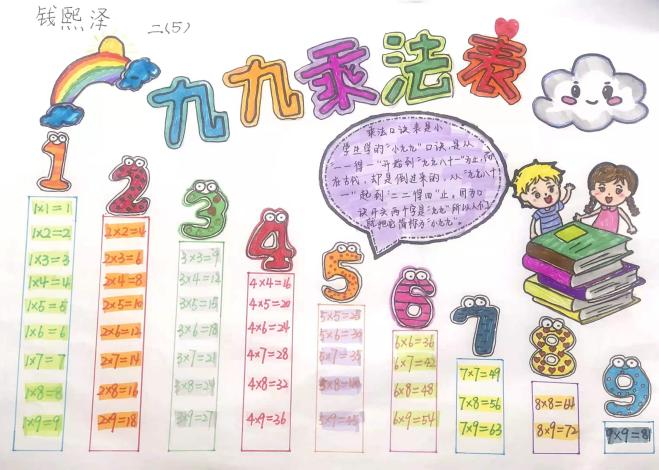 钱熙泽
二(5)
九九乘法表
乘法口诀表是小
学生学的"小九九"口诀,是从
"一一得一"开始到"九九八十一"为止,而
在古代,却是倒过来的,从"九九八十
一"起到"二二得四"止,因为口
诀开头两个字是"九九",所以人们
就把它简称为"小九九"。
1
1×1=1
1×2=2
1×3=3
1×4=4
1×5=5
1×6=6
1×7=7
1×8=8
1×9=9
2
2×2=4
2×3=6
2×4=8
2×5=10
2×6=12
2×7=14
2×8=16
2×9=18
3
3×3=9
3×4=12
3×5=15
3×6=18
3×7=21
3×8=24
3×9=27
4
4×4=16
4×5=20
4×6=24
4×7=28
4×8=32
4×9=36
5
5×5=25
5×6=30
5×7=35
5×8=40
5×9=45
6
6×6=36
6×7=42
6×8=48
6×9=54
7
7×7=49
7×8=56
7×9=63
8
8×8=64
8×9=72
9
9×9=81